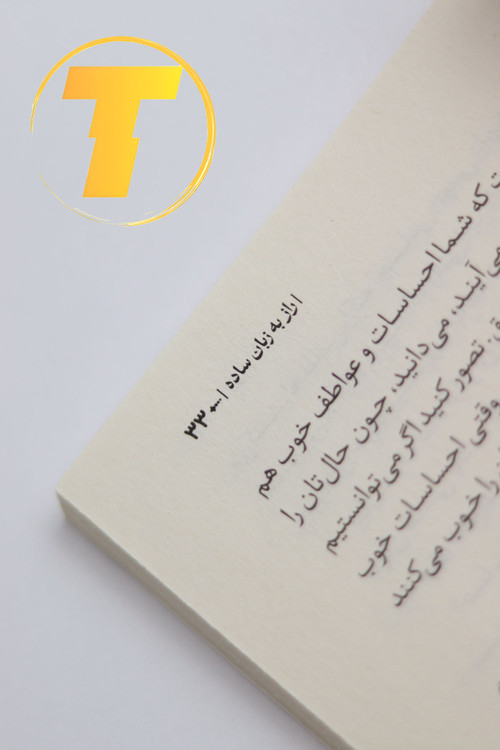 T
۳۳ •••• | راز به زبان ساده |
که شما احساسات و عواطف خوب هم
می‌آیند، می‌دانید، چون حال‌تان را
تصور کنید اگر می‌توانستیم
وقتی احساسات خوب
را خوب می‌کنند